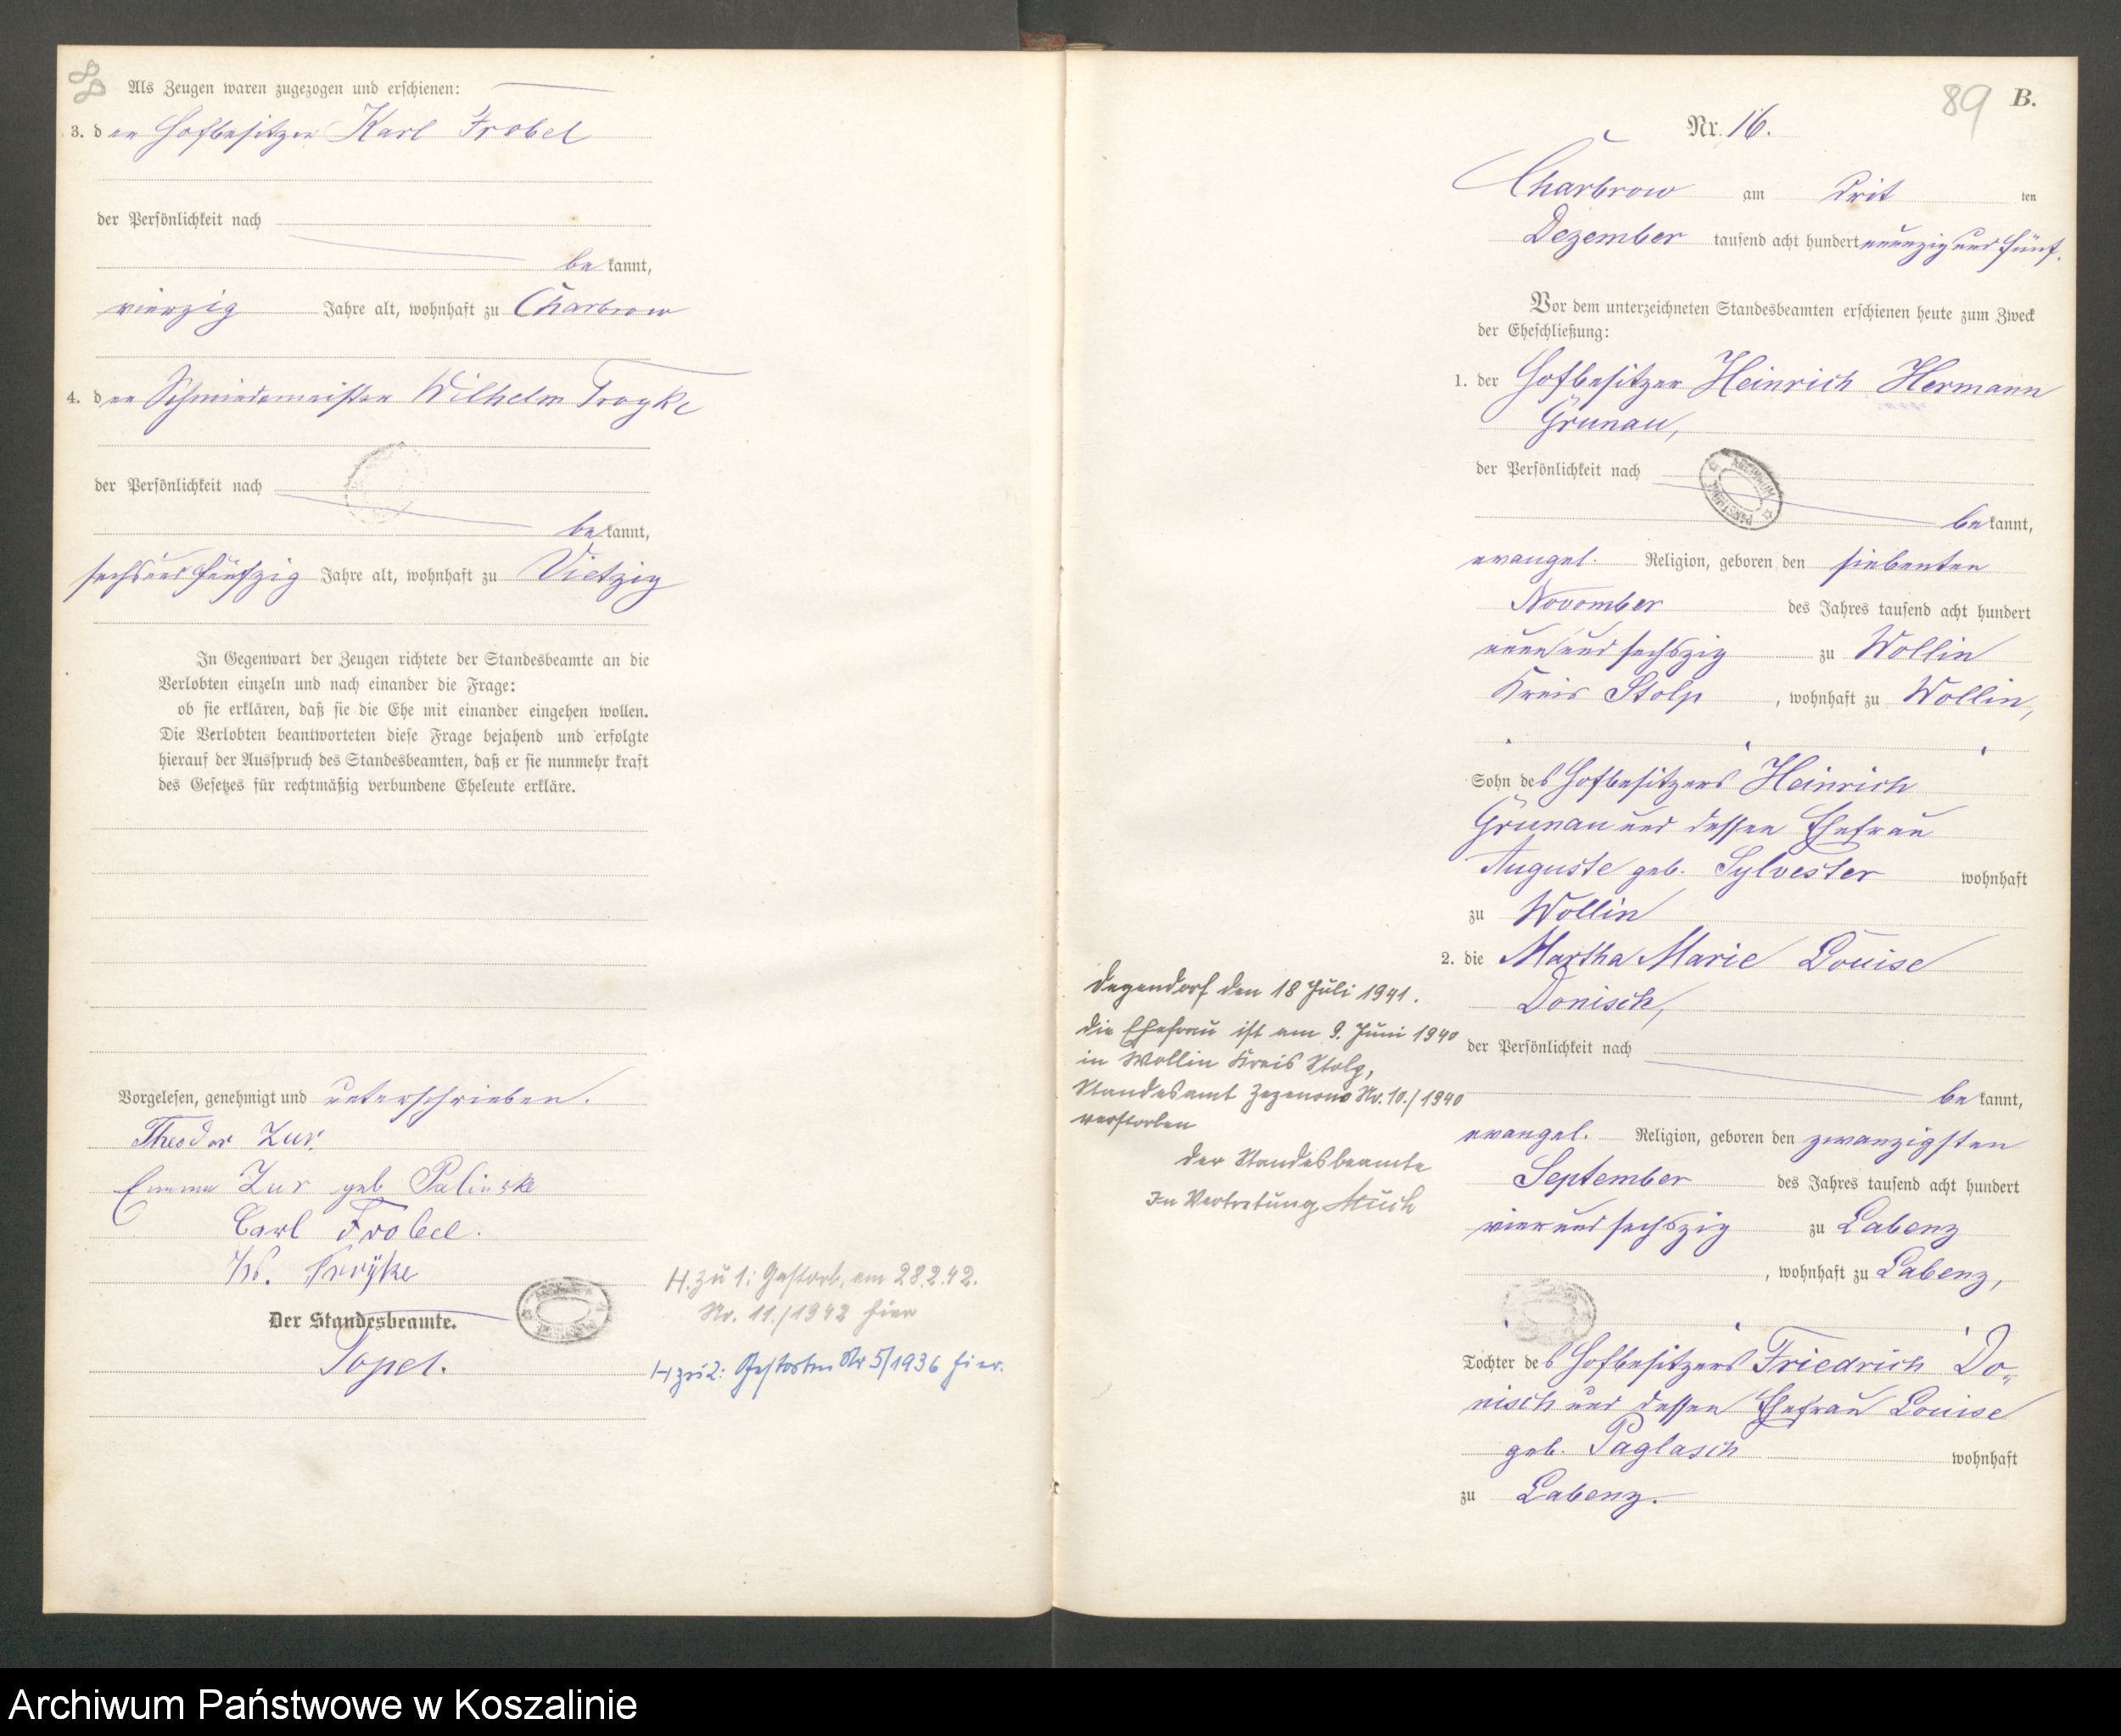 88
Als Zeugen waren zugezogen und erschienen:
3. der Hofbesitzer Karl Frobel
der Persönlichkeit nach
bekannt,
vierzig Jahre alt, wohnhaft zu Charbrow
4. der Schmiedemeister Wilhelm Troyke
der Persönlichkeit nach
bekannt,
sechs und fünfzig Jahre alt, wohnhaft zu Vietzig
In Gegenwart der Zeugen richtete der Standesbeamte an die
Verlobten einzeln und nach einander die Frage:
ob sie erklären, daß sie die Ehe mit einander eingehen wollen.
Die Verlobten beantworteten diese Frage bejahend und erfolgte
hierauf der Ausspruch des Standesbeamten, daß er sie nunmehr kraft
des Gesetzes für rechtmäßig verbundene Eheleute erkläre.
Vorgelesen, genehmigt und unterschrieben.
Theodor Zur.
Emma Zur geb Palinske
Carl Frobel.
W. Troÿke
Der Standesbeamte.
Papet.
H. zu 1: Gestorb. am 28.2.42.
Nr. 11./1942 hier
H zu 2: Gestorben Nr 5/1936 hier.
89 B.
Nr. 16.
Charbrow am drit ten
Dezember tausend acht hundert neunzig und fünf.
Vor dem unterzeichneten Standesbeamten erschienen heute zum Zweck
der Eheschließung:
1. der Hofbesitzer Heinrich Hermann
Grunau,
der Persönlichkeit nach
ARCHIWUM PAŃSTWOWE
bekannt,
evangel. Religion, geboren den siebenten
November des Jahres tausend acht hundert
neun und sechszig zu Wollin
Kreis Stolp, wohnhaft zu Wollin,
Sohn des Hofbesitzers Heinrich
Grunau und dessen Ehefrau
Auguste geb. Sylvester wohnhaft
zu Wollin
2. die Martha Marie Louise
Donisch,
der Persönlichkeit nach
bekannt,
evangel. Religion, geboren den zwanzigsten
September des Jahres tausend acht hundert
vier und sechszig zu Labenz
, wohnhaft zu Labenz,
Tochter des Hofbesitzers Friedrich Do-
nisch und dessen Ehefrau Louise
geb. Paglasch wohnhaft
zu Labenz.
Degendorf den 18 Juli 1941.
Die Ehefrau ist am 9. Juni 1940
in Wollin Kreis Stolp,
Standesamt Zezenow Nr. 10./1940
verstorben
Der Standesbeamte
In Vertretung Muth
Archiwum Państwowe w Koszalinie